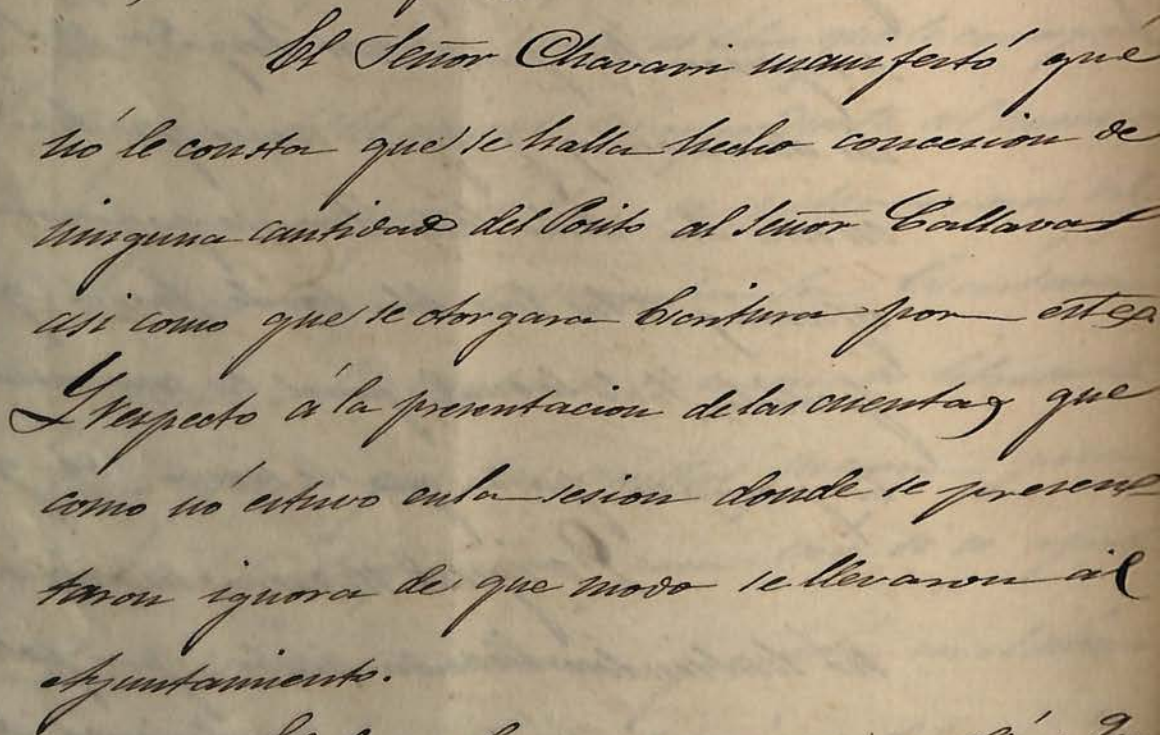 El Señor Chavarri manifestó qué
nó le consta que se halla hecho concesion de
ninguna cantidad del Posito al Señor Callava
asi como que se otorgara Escritura por este.
Y respecto á la presentacion de las cuentas que
como nó estuvo en la sesion donde se presen-
taron ignora de que modo se llevaron al
Ayuntamiento.